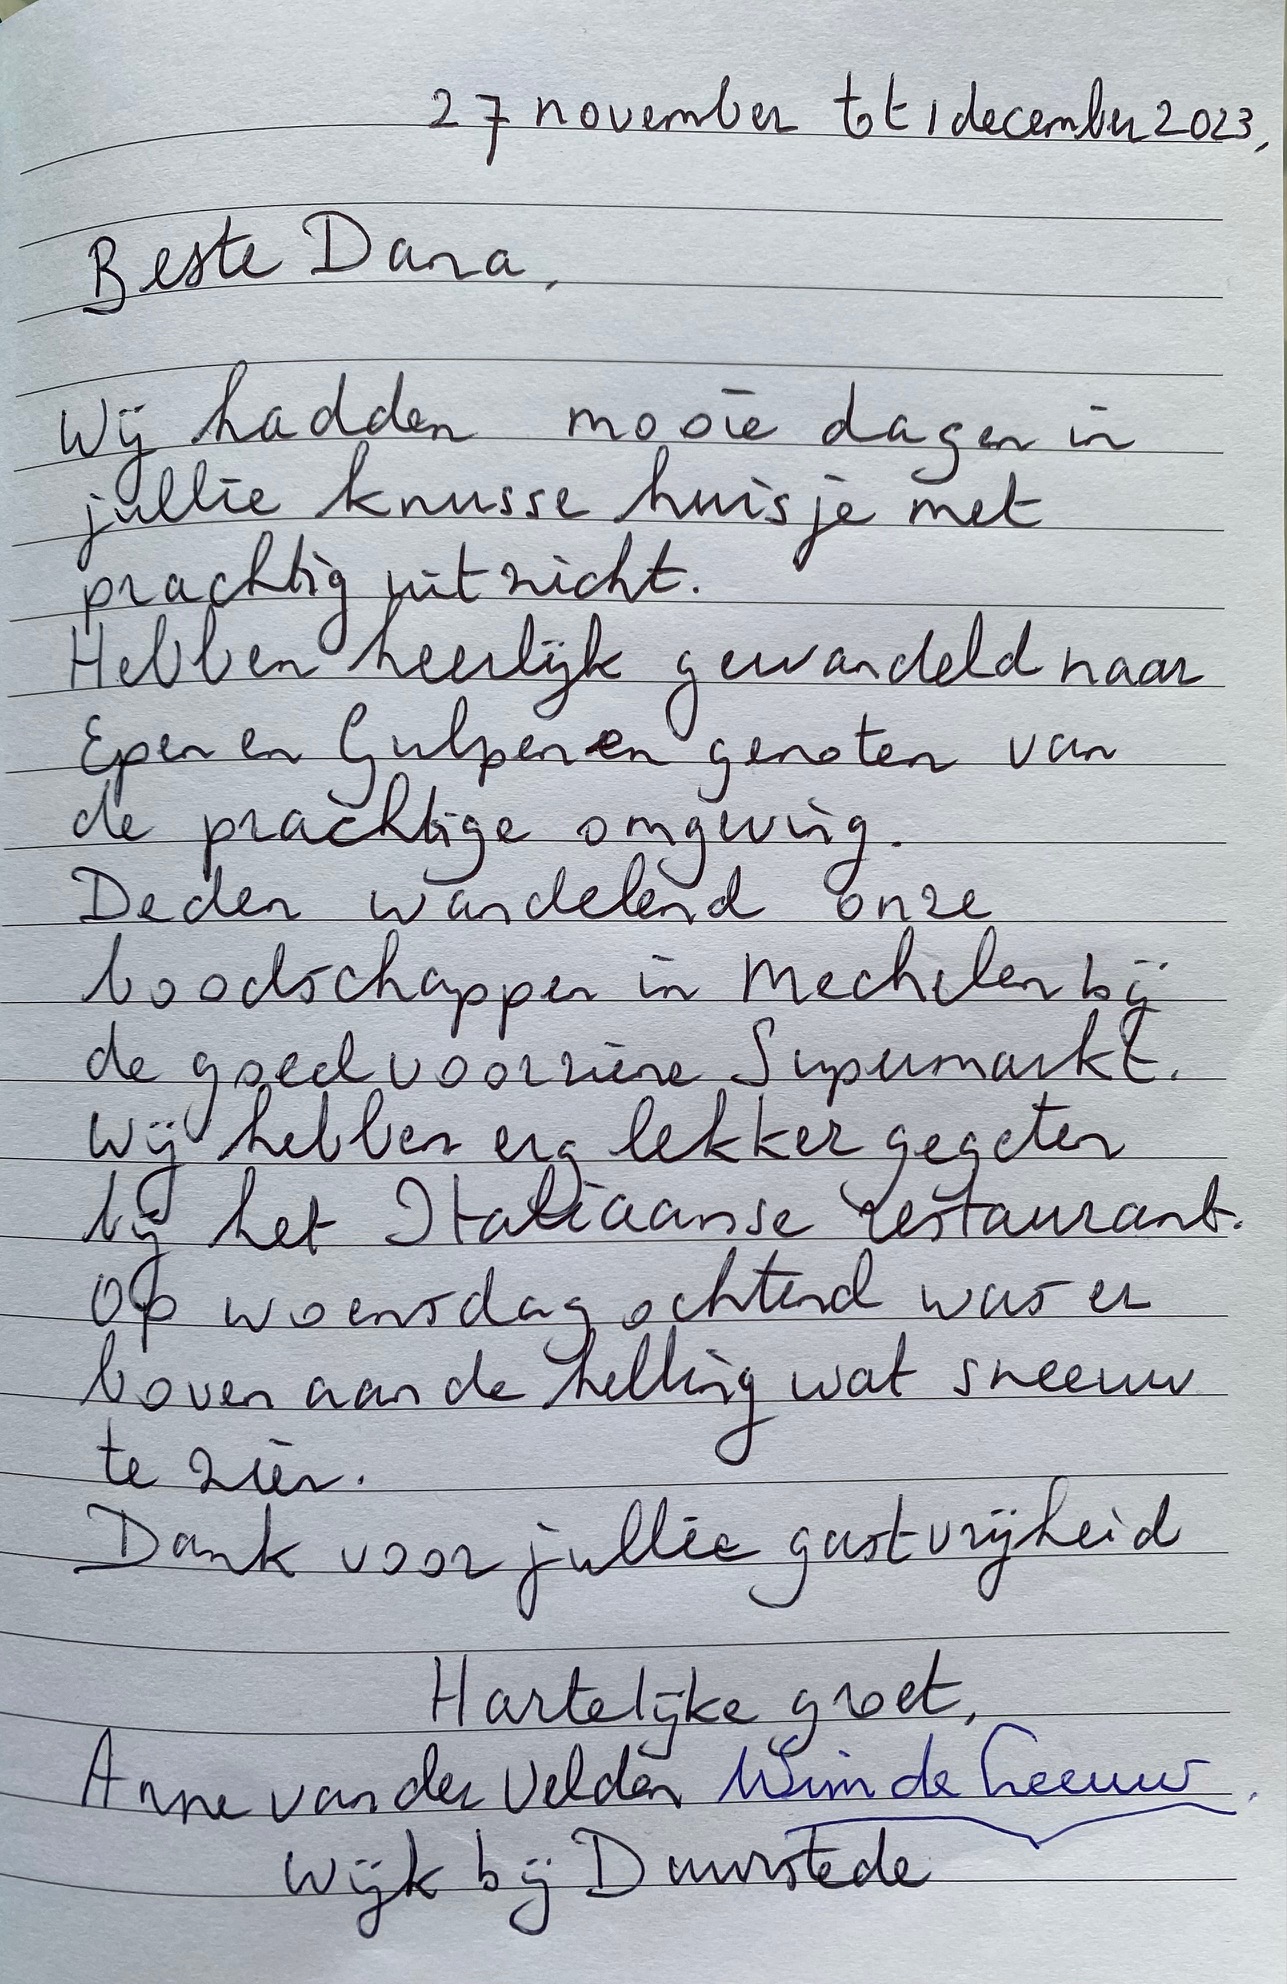 27 november tot 1 december 2023,
Beste Dana,
Wij hadden mooie dagen in
jullie knusse huisje met
prachtig uitzicht.
Hebben heerlijk gewandeld naar
Epen en Gulpen en genoten van
de prachtige omgeving.
Deden wandelend onze
boodschappen in Mechelen bij
de goed voorziene Supermarkt.
Wij hebben erg lekker gegeten
bij het Italiaanse restaurant.
Op woensdagochtend was er
boven aan de helling wat sneeuw
te zien.
Dank voor jullie gastvrijheid
Hartelijke groet,
Anne van der Velden Wim de Leeuw.
Wijk bij Duurstede